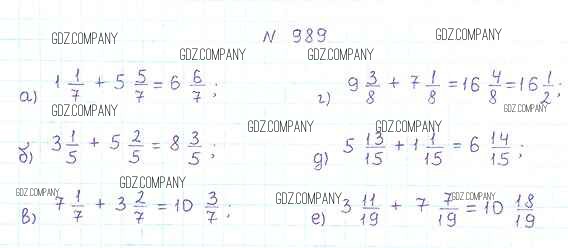 N 989
GDZ.COMPANY GDZ.COMPANY
GDZ.COMPANY GDZ.COMPANY
а) 1 1/7 + 5 5/7 = 6 6/7;
GDZ.COMPANY
б) 3 1/5 + 5 2/5 = 8 3/5;
GDZ.COMPANY
GDZ.COMPANY
в) 7 1/7 + 3 2/7 = 10 3/7;
г) 9 3/8 + 7 1/8 = 16 4/8 = 16 1/2;
GDZ.COMPANY
GDZ.COMPANY GDZ.COMPANY
д) 5 13/15 + 1 1/15 = 6 14/15;
GDZ.COMPANY GDZ.COMPANY
е) 3 11/19 + 7 7/19 = 10 18/19